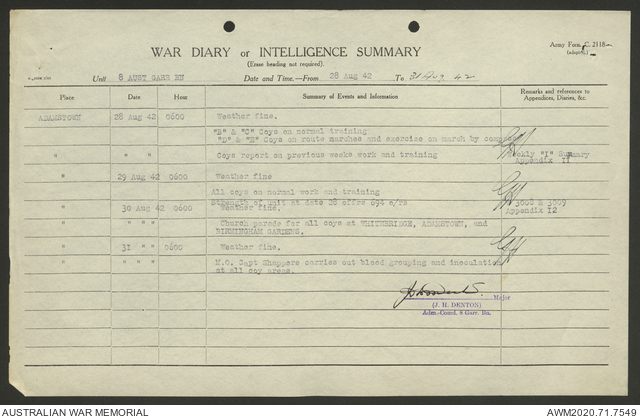 Army Form C. 2118
WAR DIARY or INTELLIGENCE SUMMARY
(Erase heading not required).
Unit 8 AUST GARR BN Date and Time.—From 28 Aug 42 To 31 Aug 42
Place Date Hour Summary of Events and Information Remarks and references to Appendices, Diaries, &c.
ADAMSTOWN 28 Aug 42 0600 Weather fine.
"B" & "C" Coys on normal training
"D" & "E" Coys on route marches and exercise on march by
" " " Coys report on previous weeks work and training Weekly "I" Summary
Appendix 11
" 29 Aug 42 0600 Weather fine
All coys on normal work and training
Strength of unit at date 28 offrs 694 o/rs 3008 & 3009
" 30 Aug 42 0600 Weather fine. Appendix 12
" " " Church parade for all coys at ADAMSTOWN, and
BIRMINGHAM GARDENS.
" 31 " " 0600 Weather fine.
" " " M.O. Capt Shappere carries out blood grouping and inoculation
at all coy areas.
Major
(J. H. DENTON)
Adm.-Comd. 8 Garr. Bn.
AUSTRALIAN WAR MEMORIAL AWM2020.71.7549